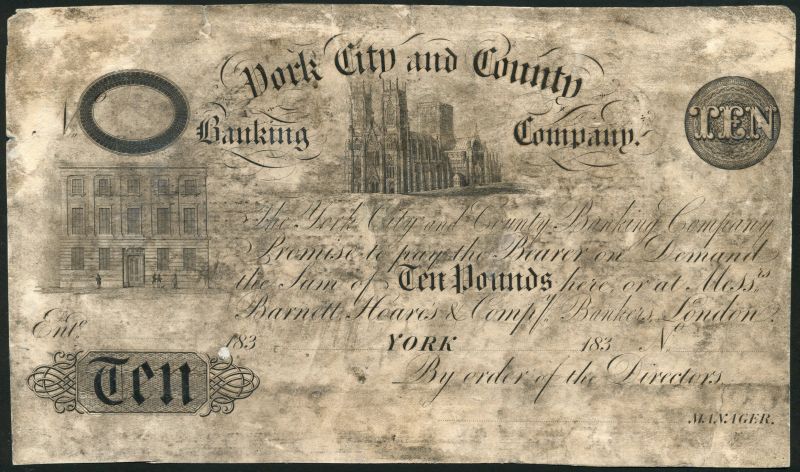 York City and County
Banking Company.
TEN
No
The York City and County Banking Company
Promise to pay the Bearer on Demand
the Sum of Ten Pounds here, or at Messrs.
Barnett, Hoares & Compy. Bankers, London.
Entd.
183 YORK 183 No
By order of the Directors
Ten
MANAGER.